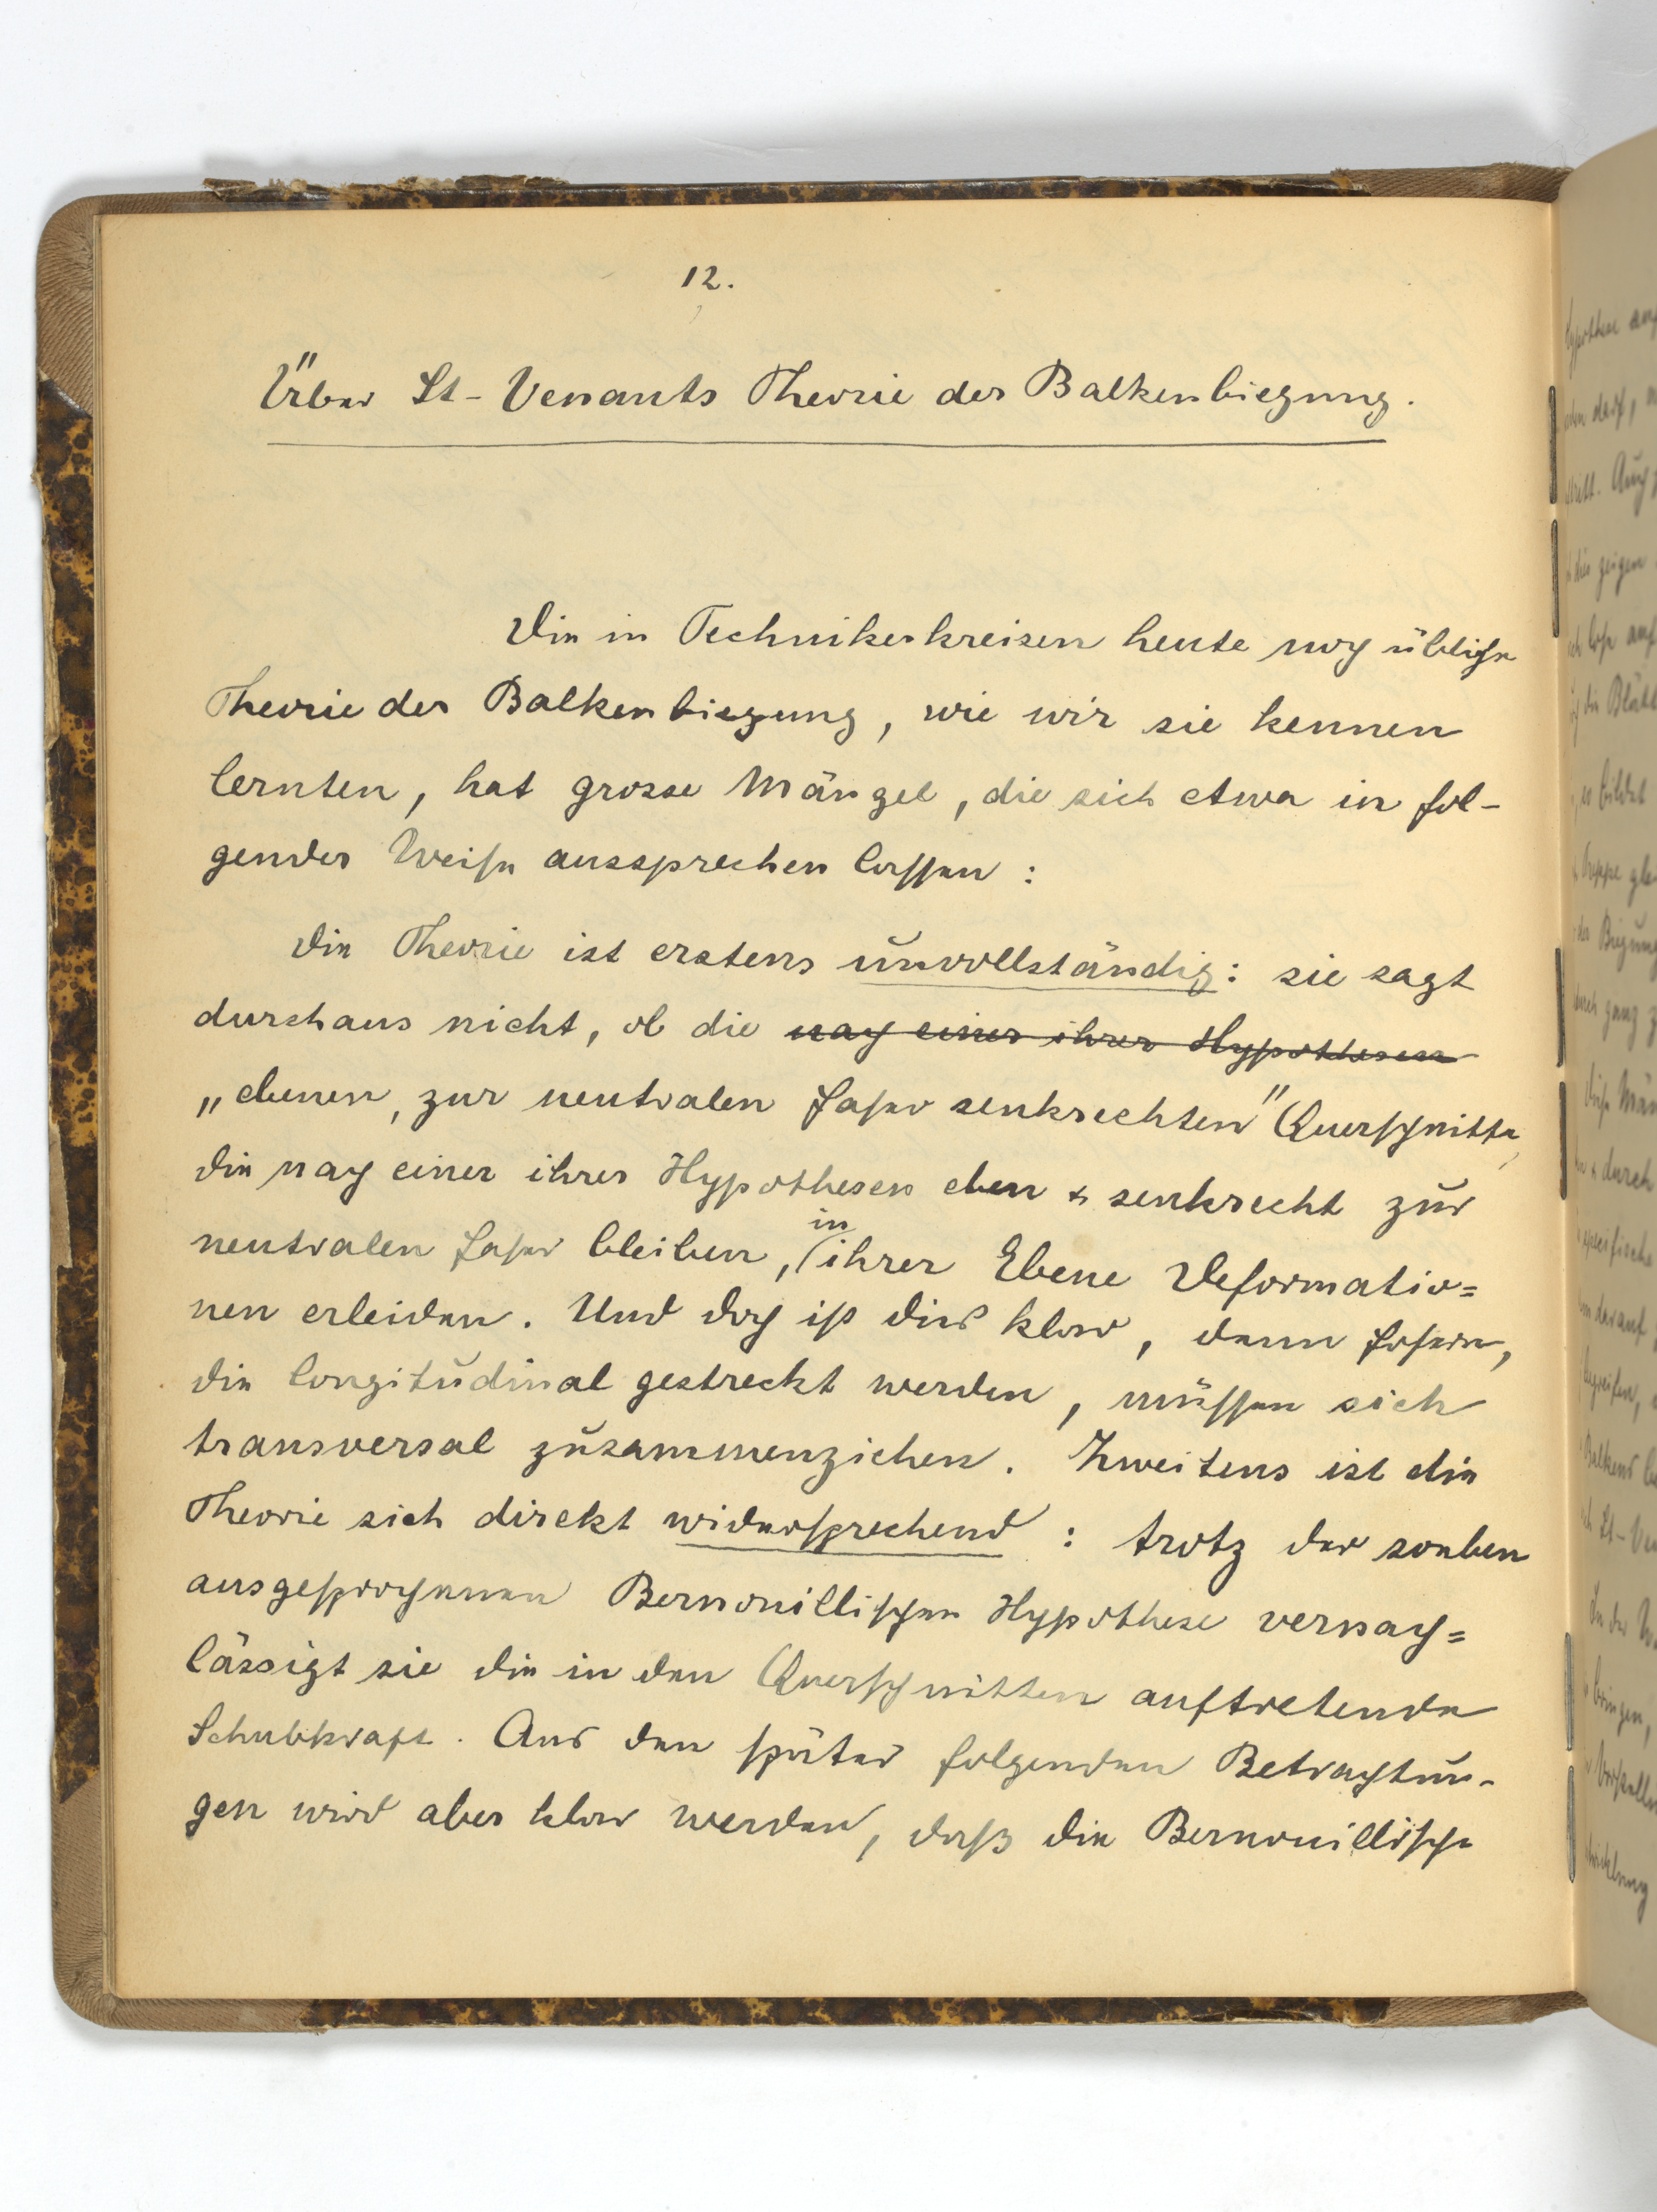 12.
Über St-Venants Theorie der Balkenbiegung.
Die in Technikerkreisen heute noch übliche
Theorie der Balkenbiegung, wie wir sie kennen
lernten, hat grosse Mängel, die sich etwa in fol-
gender Weise aussprechen lassen:
Die Theorie ist erstens unvollständig: sie sagt
durchaus nicht, ob die nach einer ihrer Hypothesen
„ebenen, zur neutralen Faser senkrechten" Querschnitte,
die nach einer ihrer Hypothesen eben & senkrecht zur
neutralen Faser bleiben, in ihrer Ebene Deformatio=
nen erleiden. Und doch ist dies klar, denn Fasern,
die longitudinal gestreckt werden, müssen sich
transversal zusammenziehen. Zweitens ist die
Theorie sich direkt widersprechend: trotz der soeben
ausgesprochenen Bernouillischen Hypothese vernach=
lässigt sie die in den Querschnitten auftretende
Schubkraft. Aus den später folgenden Betrachtun-
gen wird aber klar werden, dass die Bernouillische